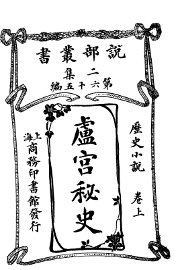 說部叢書
二集
第六十五編
歷史小說 卷上
盧宮秘史
上海商務印書館發行